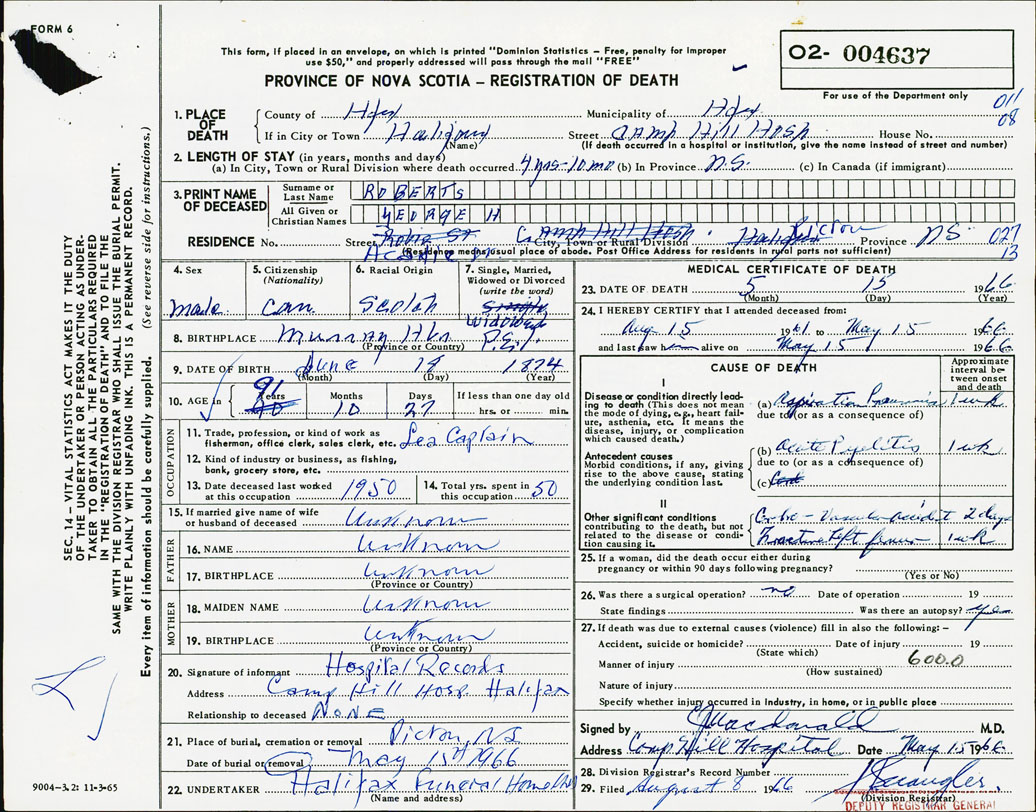 FORM 6
This form, if placed in an envelope, on which is printed "Dominion Statistics – Free, penalty for improper
use $50," and properly addressed will pass through the mail "FREE"
PROVINCE OF NOVA SCOTIA – REGISTRATION OF DEATH
O2- 004637
For use of the Department only
011
08
1. PLACE OF DEATH
County of Hfx Municipality of Hfx
If in City or Town Halifax Street CAMP Hill Hosp House No.
(Name) (If death occurred in a hospital or institution, give the name instead of street and number)
2. LENGTH OF STAY (in years, months and days)
(a) In City, Town or Rural Division where death occurred 4 yrs-10 mo (b) In Province N.S. (c) In Canada (if immigrant)
3. PRINT NAME OF DECEASED
Surname or Last Name ROBERTS
All Given or Christian Names GEORGE H
RESIDENCE No. Street Robie St Camp Hill Hosp. City, Town or Rural Division Halifax Pictou Province NS 027
13
(Residence means usual place of abode. Post Office Address for residents in rural parts not sufficient)
4. Sex
Male
5. Citizenship
(Nationality)
Can.
6. Racial Origin
Scotch
7. Single, Married,
Widowed or Divorced
(write the word)
Single
Widowed
8. BIRTHPLACE Murray Hbr P.E.I.
(Province or Country)
9. DATE OF BIRTH June 18 1874
(Month) (Day) (Year)
10. AGE in
91
Years Months Days If less than one day old
10 27 hrs. or min.
OCCUPATION
11. Trade, profession, or kind of work as
fisherman, office clerk, sales clerk, etc. Sea Captain
12. Kind of industry or business, as fishing,
bank, grocery store, etc.
13. Date deceased last worked
at this occupation 1950
14. Total yrs. spent in
this occupation 50
15. If married give name of wife
or husband of deceased Unknown
FATHER
16. NAME Unknown
17. BIRTHPLACE Unknown
(Province or Country)
MOTHER
18. MAIDEN NAME Unknown
19. BIRTHPLACE Unknown
(Province or Country)
20. Signature of informant Hospital Records
Address Camp Hill Hosp Halifax
Relationship to deceased NONE
21. Place of burial, cremation or removal Pictou, NS
Date of burial or removal May 15th 1966
22. UNDERTAKER Halifax Funeral Home
(Name and address)
MEDICAL CERTIFICATE OF DEATH
23. DATE OF DEATH 5 15 1966
(Month) (Day) (Year)
24. I HEREBY CERTIFY that I attended deceased from:
Aug 15 1961 to May 15 1966
and last saw him alive on May 15 1966
CAUSE OF DEATH
Approximate
interval be-
tween onset
and death
I
Disease or condition directly lead-
ing to death (This does not mean
the mode of dying, e.g., heart fail-
ure, asthenia, etc. It means the
disease, injury, or complication
which caused death.)
(a) Aspiration Pneumonia 1 wk
due to (or as a consequence of)
Antecedent causes
Morbid conditions, if any, giving
rise to the above cause, stating
the underlying condition last.
(b) Acute Pyelitis 1 wk
due to (or as a consequence of)
(c)
II
Other significant conditions
contributing to the death, but not
related to the disease or condi-
tion causing it.
Cerebro-Vascular accident 2 days
Fracture left femur 1 wk
25. If a woman, did the death occur either during
pregnancy or within 90 days following pregnancy?
(Yes or No)
26. Was there a surgical operation? no Date of operation 19
State findings Was there an autopsy? yes
27. If death was due to external causes (violence) fill in also the following:–
Accident, suicide or homicide? Date of injury 19
(State which)
Manner of injury 600.0
(How sustained)
Nature of injury
Specify whether injury occurred in industry, in home, or in public place
Signed by Macdonald M.D.
Address Camp Hill Hospital Date May 15 1966
28. Division Registrar's Record Number
29. Filed August 8 1966
(Division Registrar)
DEPUTY REGISTRAR GENERAL
SEC. 14 – VITAL STATISTICS ACT MAKES IT THE DUTY
OF THE UNDERTAKER OR PERSON ACTING AS UNDER-
TAKER TO OBTAIN ALL THE PARTICULARS REQUIRED
IN THE "REGISTRATION OF DEATH" AND TO FILE THE
SAME WITH THE DIVISION REGISTRAR WHO SHALL ISSUE THE BURIAL PERMIT.
WRITE PLAINLY WITH UNFADING INK. THIS IS A PERMANENT RECORD.
Every item of information should be carefully supplied. (See reverse side for instructions.)
9004–3.2: 11-3-65